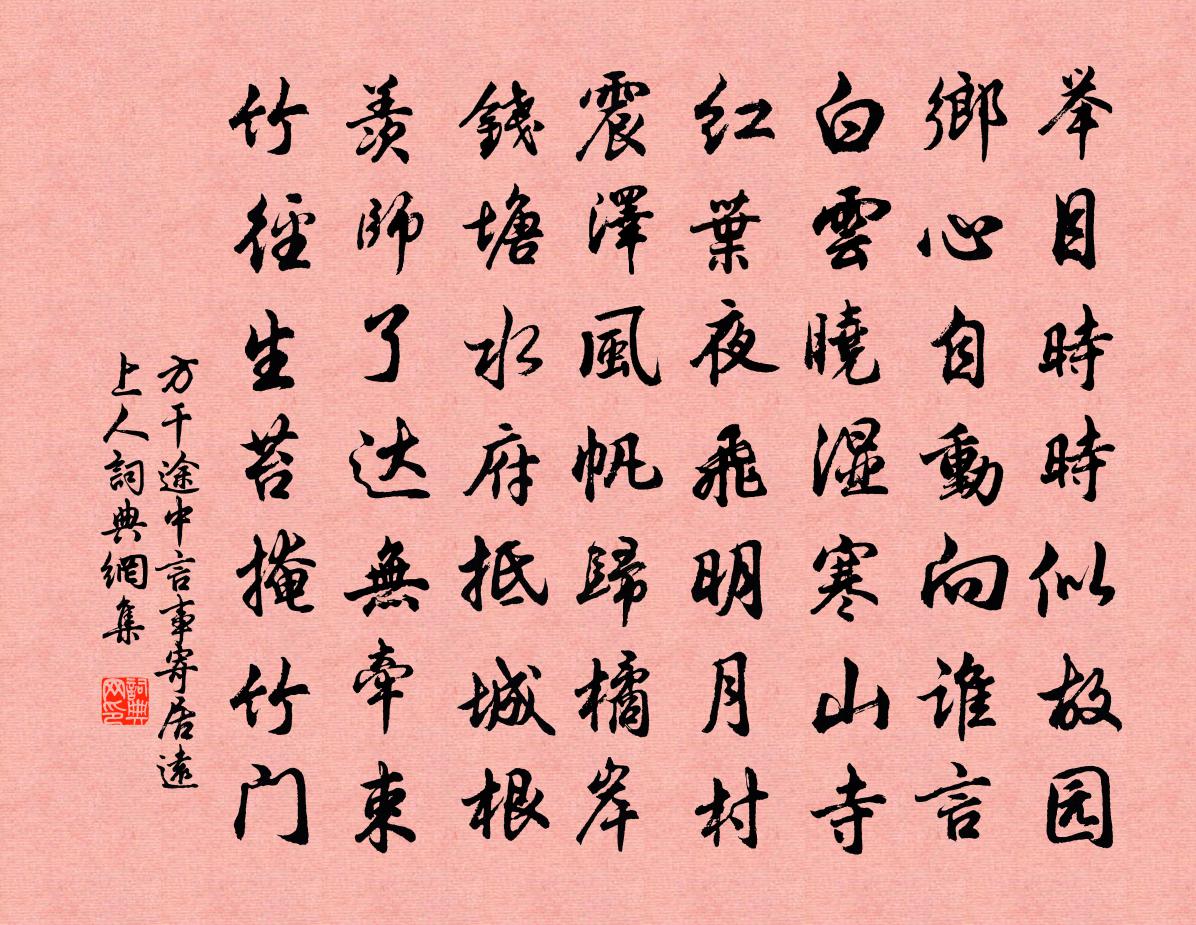 举目時時似故园
鄉心自動向谁言
白雲曉湿寒山寺
红葉夜飛明月村
震澤風帆歸橘岸
錢塘水府抵城根
羨師了达無牽束
竹徑生苔掩竹门
方干途中言事寄居遠
上人詞典網集
詞典網印